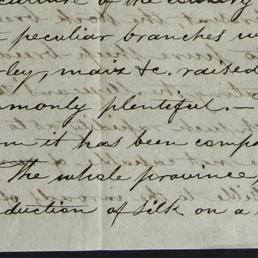 culture of the country
peculiar branches w
ley, maix &c. raised
monly plentiful. —
m it has been compa
The whole province,
duction of silk on a